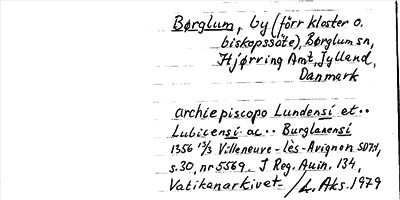 Børglum, by (förr kloster o.
biskopssäte), Børglum sn,
Hjørring Amt, Jylland,
Danmark
archiepiscopo Lundensi et..
Lubicensi ac.. Burglanensi
1356 13/3 Villeneuve-lès-Avignon SD7:1,
s.30, nr 5569. I Reg. Auin. 134,
Vatikanarkivet /L. Aks. 1979